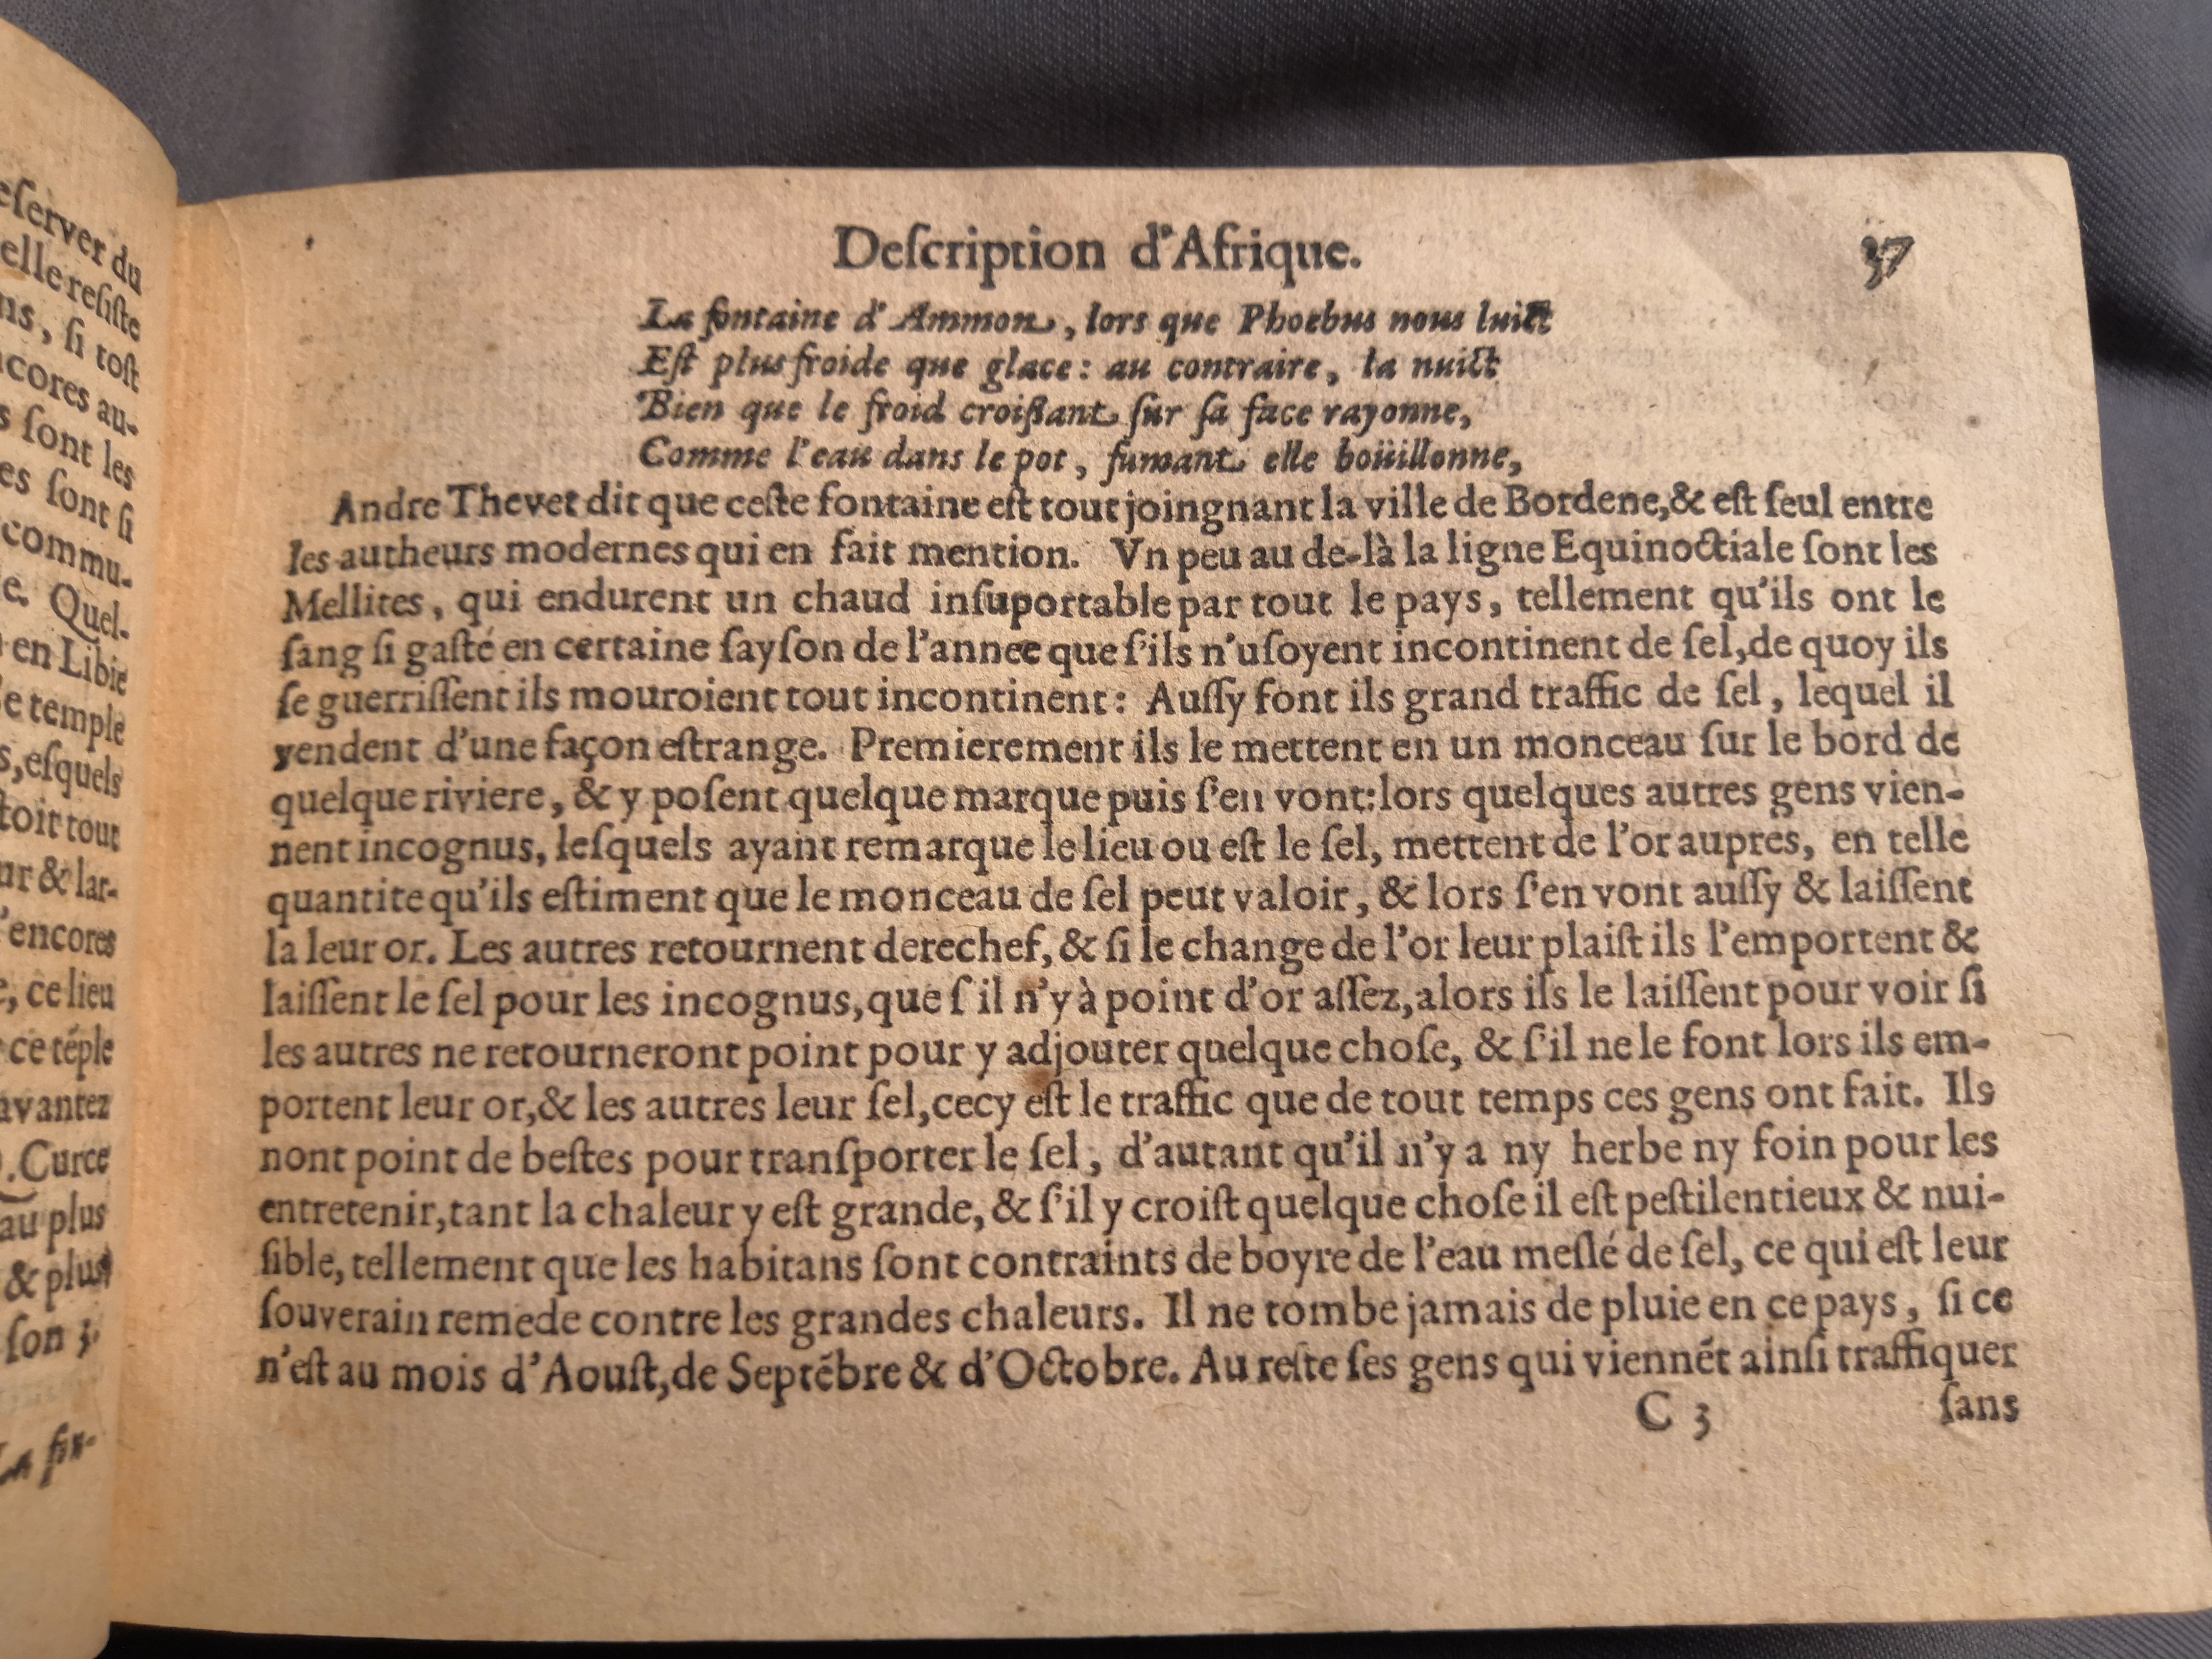 eſerver du
elle reſiſte
ns, ſi toſt
ncores au-
s ſont les
es ſont ſi
commu-
e. Quel-
en Libie
e temple
s, eſquels
toit tout
ur & lar-
'encores
e, ce lieu
ce tẽple
avantez
.Curce
au plus
& plus
ſon 3.
La fõ-
Deſcription d'Afrique.
37
La fontaine d'Ammon, lors que Phoebus nous luict
Eſt plus froide que glace: au contraire, la nuict
Bien que le froid croiſſant ſur ſa face rayonne,
Comme l'eau dans le pot, fumant elle boüillonne,
Andre Thevet dit que ceſte fontaine eſt tout joingnant la ville de Bordene,& eſt ſeul entre
les autheurs modernes qui en fait mention. Vn peu au de-là la ligne Equinoctiale ſont les
Mellites, qui endurent un chaud inſuportable par tout le pays, tellement qu'ils ont le
ſang ſi gaſté en certaine ſayſon de l'annee que ſ'ils n'uſoyent incontinent de ſel,de quoy ils
ſe guerriſſent ils mouroient tout incontinent: Auſſy font ils grand traffic de ſel, lequel il
vendent d'une façon eſtrange. Premierement ils le mettent en un monceau ſur le bord de
quelque riviere, & y poſent quelque marque puis ſ'en vont:lors quelques autres gens vien-
nent incognus, leſquels ayant remarque le lieu ou eſt le ſel, mettent de l'or aupres, en telle
quantite qu'ils eſtiment que le monceau de ſel peut valoir, & lors ſ'en vont auſſy & laiſſent
la leur or. Les autres retournent derechef, & ſi le change de l'or leur plaiſt ils l'emportent &
laiſſent le ſel pour les incognus,que ſ'il n'y à point d'or aſſez,alors ils le laiſſent pour voir ſi
les autres ne retourneront point pour y adjouter quelque choſe, & ſ'il ne le font lors ils em-
portent leur or,& les autres leur ſel,cecy eſt le traffic que de tout temps ces gens ont fait. Ils
nont point de beſtes pour tranſporter le ſel, d'autant qu'il n'y a ny herbe ny foin pour les
entretenir,tant la chaleur y eſt grande, & ſ'il y croiſt quelque choſe il eſt peſtilentieux & nui-
ſible, tellement que les habitans ſont contraints de boyre de l'eau meſlé de ſel, ce qui eſt leur
ſouverain remede contre les grandes chaleurs. Il ne tombe jamais de pluie en ce pays, ſi ce
n'eſt au mois d'Aouſt,de Septẽbre & d'Octobre. Au reſte ſes gens qui viennẽt ainſi traffiquer
C 3
ſans